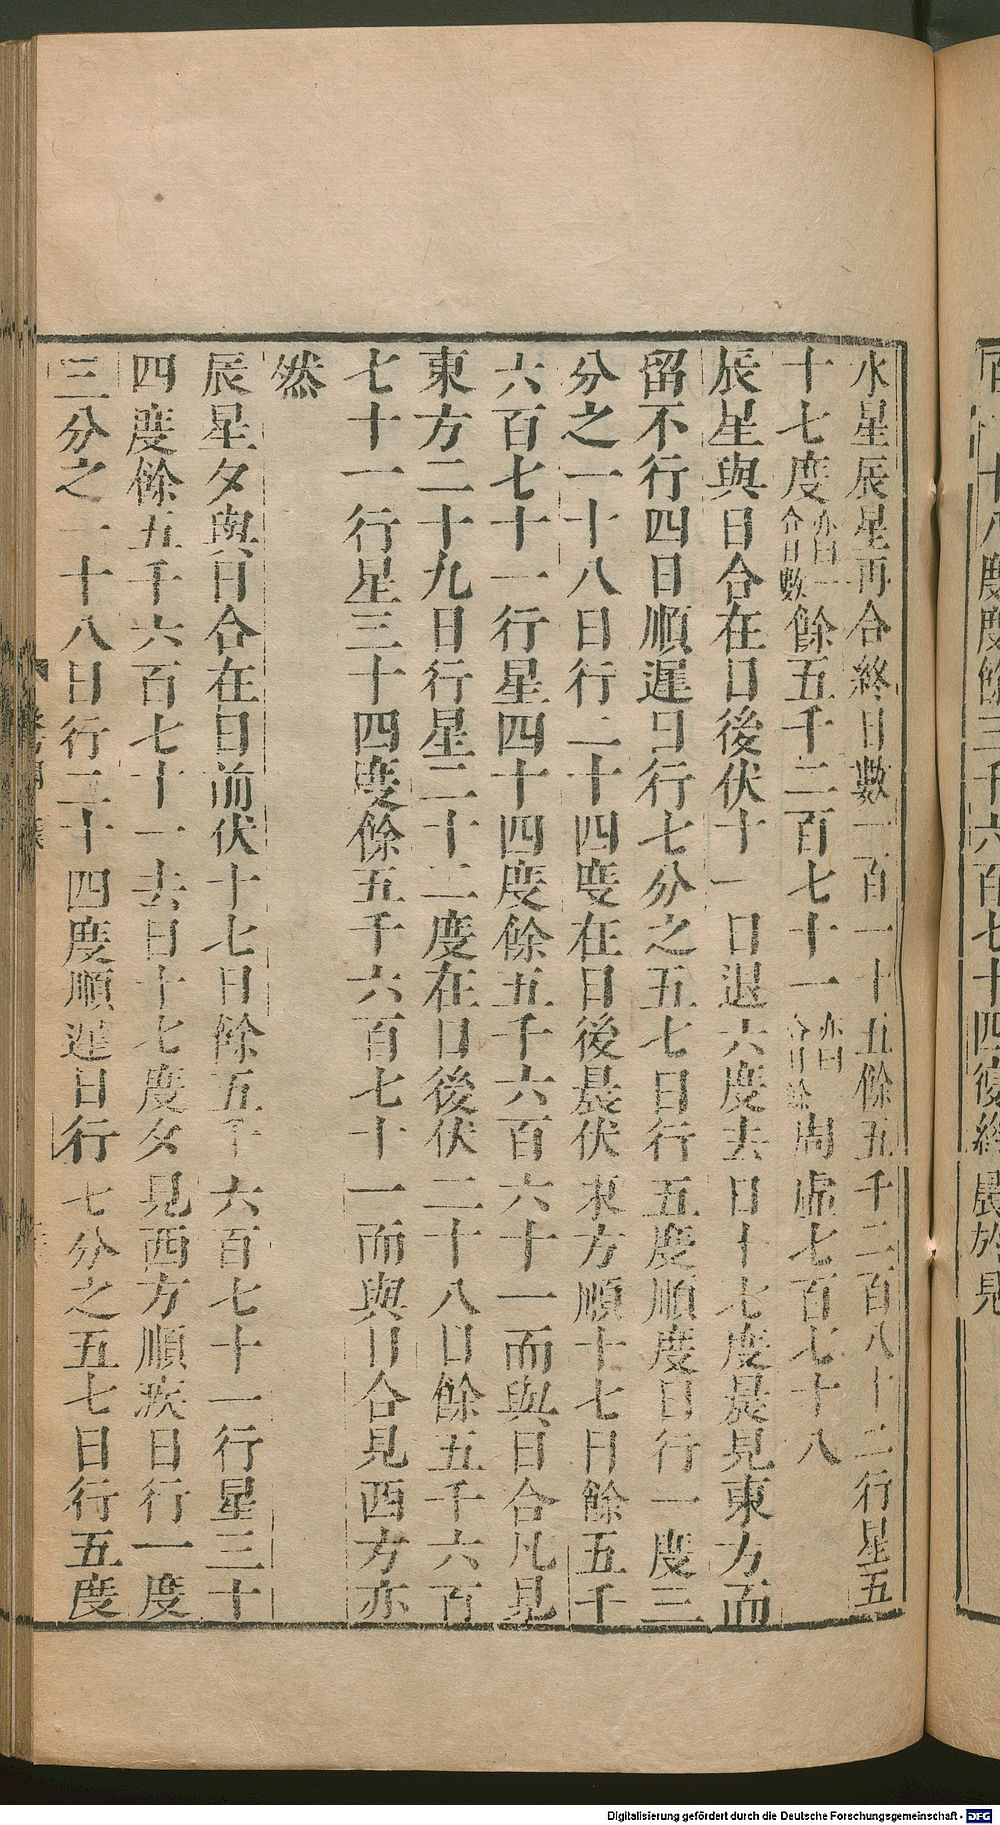 水星辰星再合終日數一百一十五餘五千二百八十二行星五
十七度亦曰一合日數餘五千二百七十一亦曰合日餘周虛七百七十八
辰星與日合在日後伏十一日退六度去日十七度晨見東方而
留不行四日順遲日行七分之五七日行五度順度日行一度三
分之一十八日行二十四度在日後晨伏東方順十七日餘五千
六百七十一行星四十四度餘五千六百六十一而與日合凡見
東方二十九日行星二十二度在日後伏二十八日餘五千六百
七十一行星三十四度餘五千六百七十一而與日合見西方亦
然
辰星夕與日合在日前伏十七日餘五千六百七十一行星三十
四度餘五千六百七十一去日十七度夕見西方順疾日行一度
三分之一十八日行二十四度順遲日行七分之五七日行五度
十八度度餘三千六百七十四復終晨於見
Digitalisierung gefördert durch die Deutsche Forschungsgemeinschaft - DFG